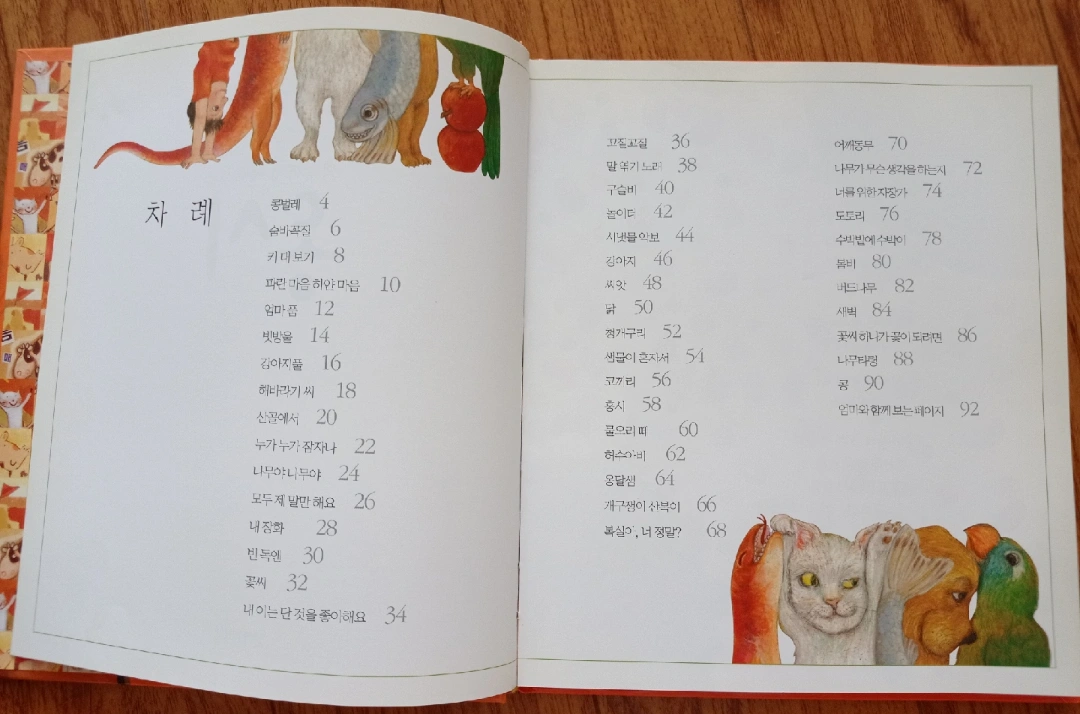 차 례
콩벌레 4
숨바꼭질 6
키 대 보기 8
파란 마을 하얀 마음 10
엄마 품 12
빗방울 14
강아지풀 16
해바라기 씨 18
산골에서 20
누가 누가 잠자나 22
나무야 나무야 24
모두 제 말만 해요 26
내 장화 28
빈 독엔 30
꽃씨 32
내 이는 단 것을 좋아해요 34
꼬질꼬질 36
말 엮기 노래 38
구슬비 40
놀이터 42
시냇물 악보 44
강아지 46
씨앗 48
닭 50
청개구리 52
샘물이 혼자서 54
코끼리 56
홍시 58
물오리 떼 60
허수아비 62
옹달샘 64
개구쟁이 산복이 66
복실아, 너 정말? 68
어깨동무 70
나무가 무슨 생각을 하는지 72
너를 위한 자장가 74
도토리 76
수박밭에 수박이 78
봄비 80
버드나무 82
새벽 84
꽃씨 하나가 꽃이 되려면 86
나무타령 88
콩 90
엄마와 함께 보는 페이지 92